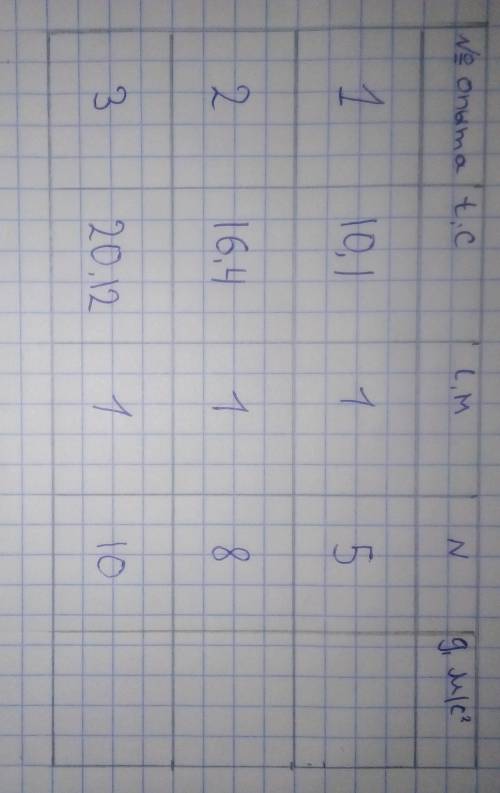 № опыта t, С l, м N g, м/с²
1 10,1 1 5
2 16,4 1 8
3 20,12 1 10